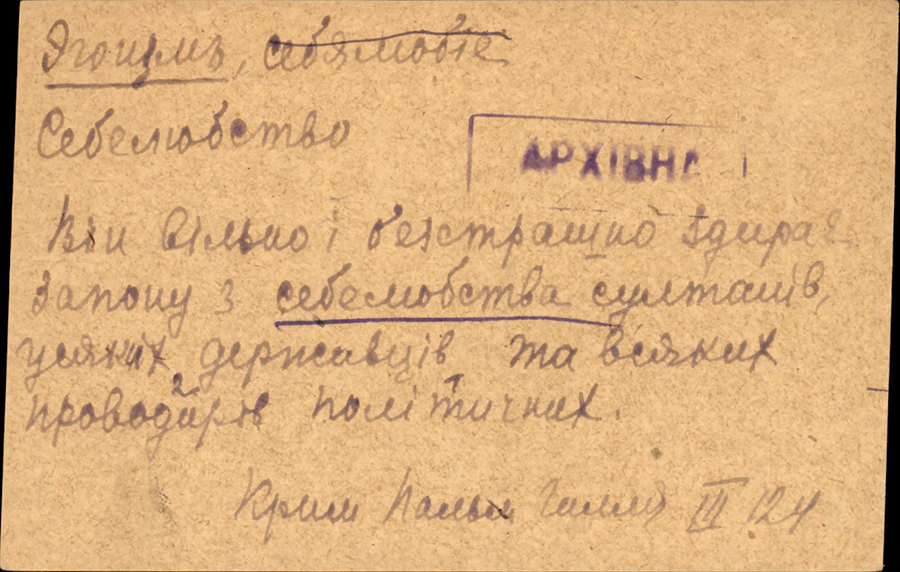 Эгоизмъ, себялюбіе
Себелюбство
АРХІВНА
Він вільно і безстрашно здирає
запону з себелюбства султанів,
усяких державців та всяких
проводирів політичних.
Крим Пальм Гилля III 124